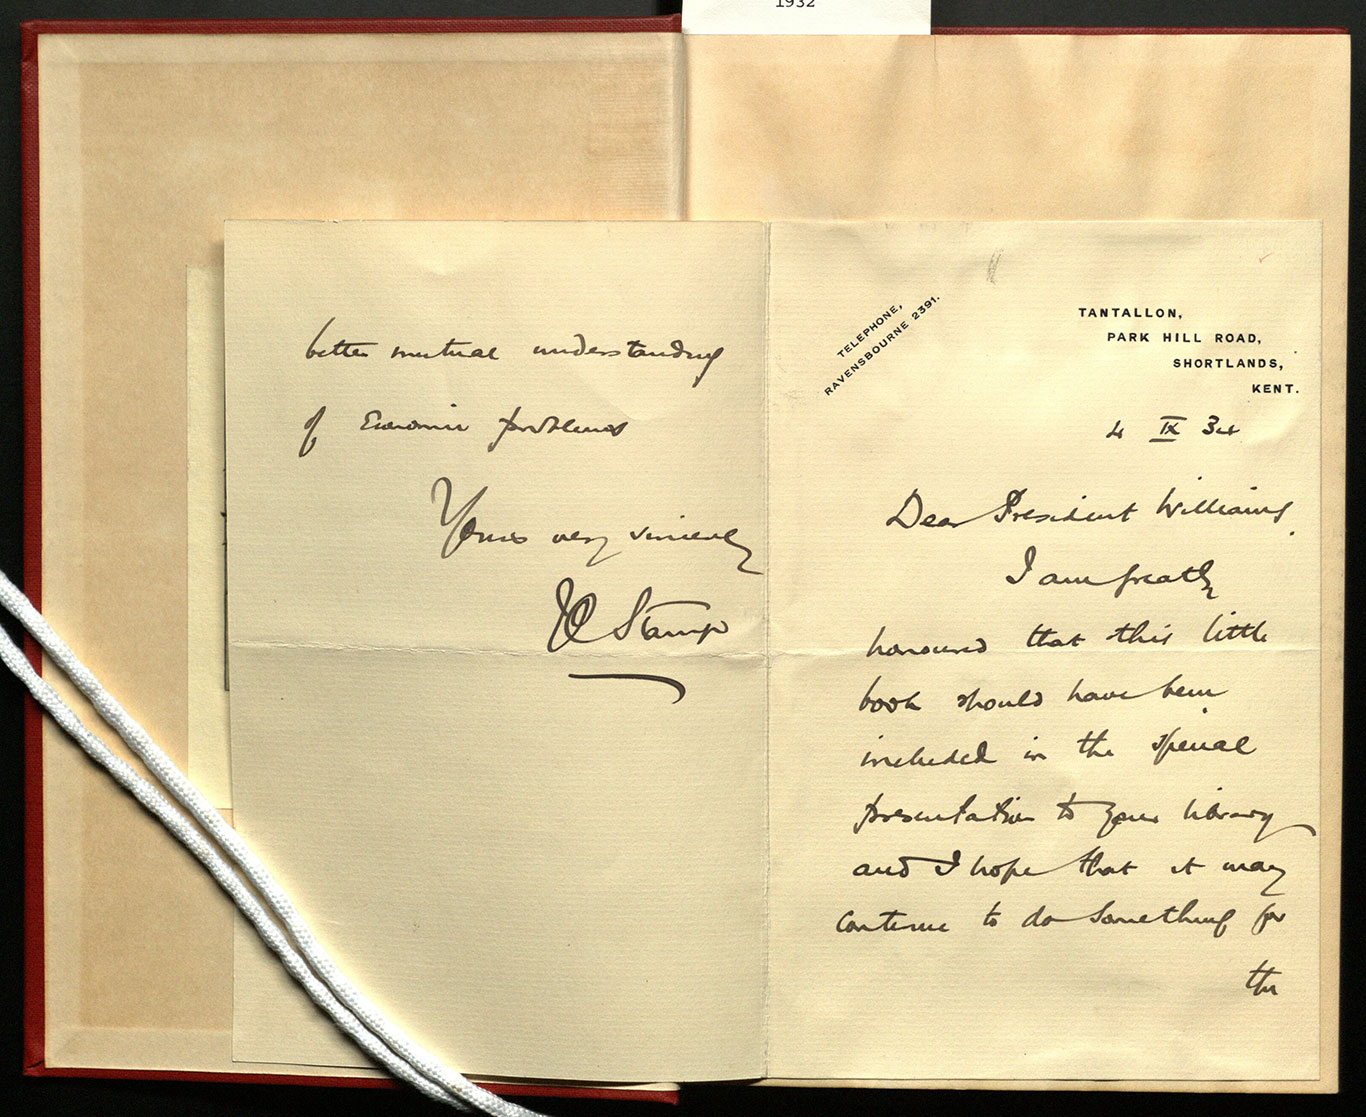 1932
TELEPHONE,
RAVENSBOURNE 2391.
TANTALLON,
PARK HILL ROAD,
SHORTLANDS,
KENT.
4 IX 34
Dear President Williams,
I am greatly
honoured that this little
book should have been
included in the special
presentation to your library
and I hope that it may
continue to do something for
the
better mutual understanding
of Economic problems
Yours very sincerely
JC Stamp